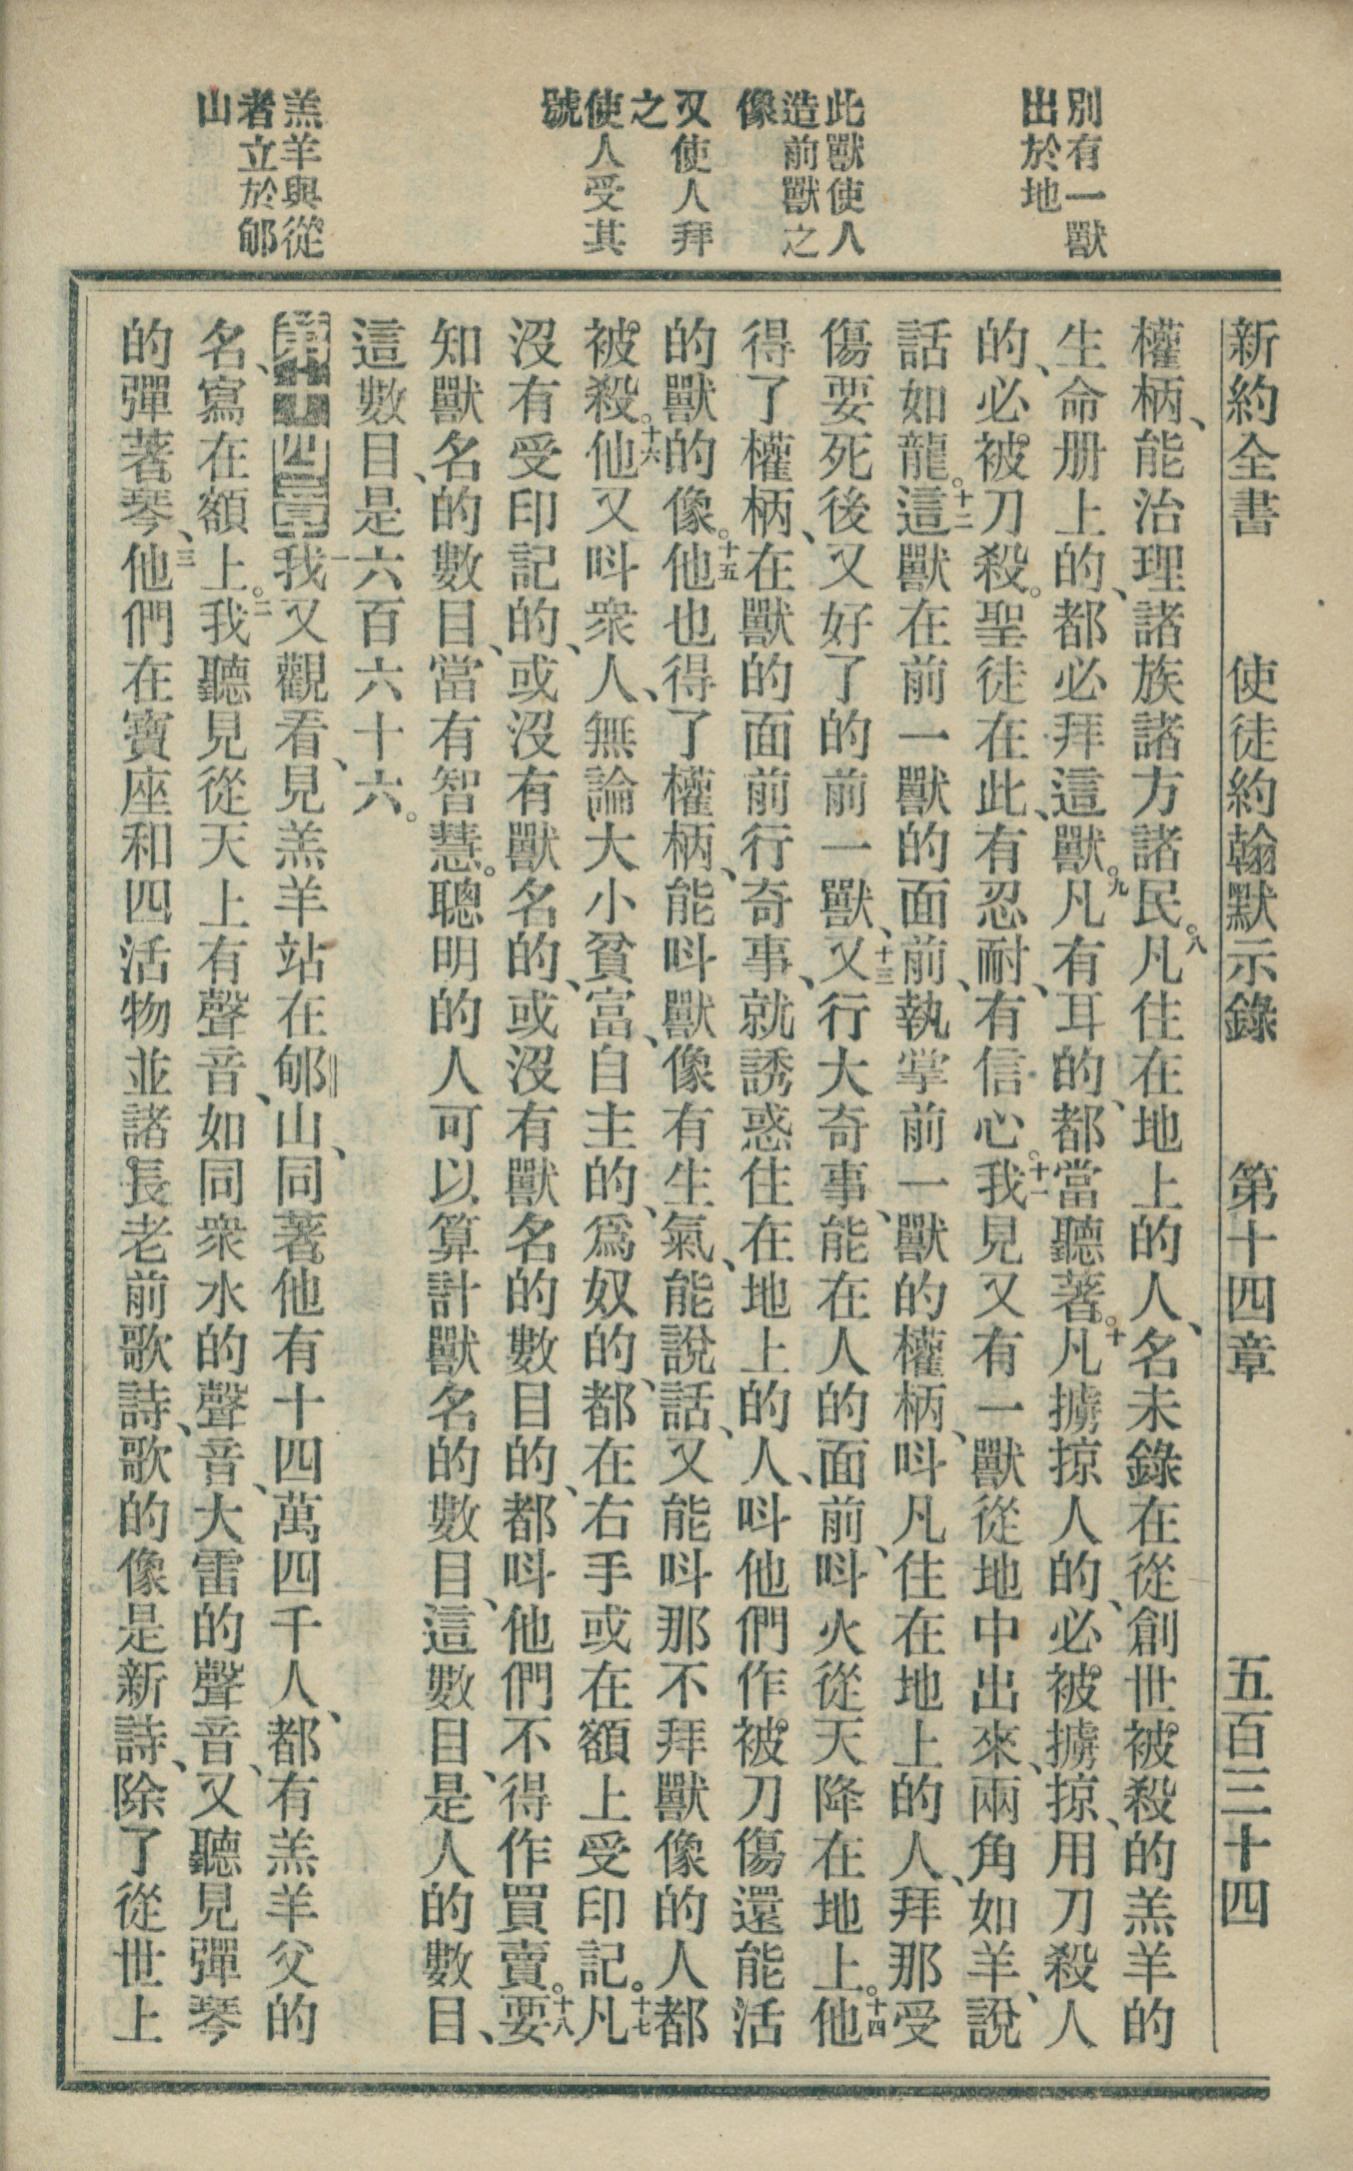 別有一獸
出於地
此獸使人
造前獸之
像
又使人拜
之
使人受其
號
羔羊與從
者立於郇
山
新約全書 使徒約翰默示錄 第十四章 五百三十四
權柄、能治理諸族諸方諸民。八凡住在地上的人、名未錄在從創世被殺的羔羊的
生命册上的、都必拜這獸。九凡有耳的、都當聽著。十凡擄掠人的、必被擄掠、用刀殺人
的、必被刀殺。聖徒在此、有忍耐、有信心。十一我見又有一獸從地中出來、兩角如羊、說
話如龍。十二這獸在前一獸的面前、執掌前一獸的權柄、呌凡住在地上的人、拜那受
傷要死後又好了的前一獸、十三又行大奇事、能在人的面前、呌火從天降在地上。十四他
得了權柄、在獸的面前行奇事、就誘惑住在地上的人、呌他們作被刀傷還能活
的獸的像。十五他也得了權柄、能呌獸像有生氣、能說話、又能呌那不拜獸像的人都
被殺。十六他又呌衆人、無論大小貧富、自主的、爲奴的、都在右手或在額上受印記。十七凡
沒有受印記的、或沒有獸名的、或沒有獸名的數目的、都呌他們不得作買賣。十八要
知獸名的數目、當有智慧。聰明的人可以算計獸名的數目、這數目、是人的數目、
這數目、是六百六十六。
第十四章一我又觀看、見羔羊站在郇山、同著他有十四萬四千人、都有羔羊父的
名、寫在額上。二我聽見從天上有聲音、如同衆水的聲音、大雷的聲音、又聽見彈琴
的彈著琴、三他們在寶座和四活物並諸長老前歌詩、歌的像是新詩、除了從世上